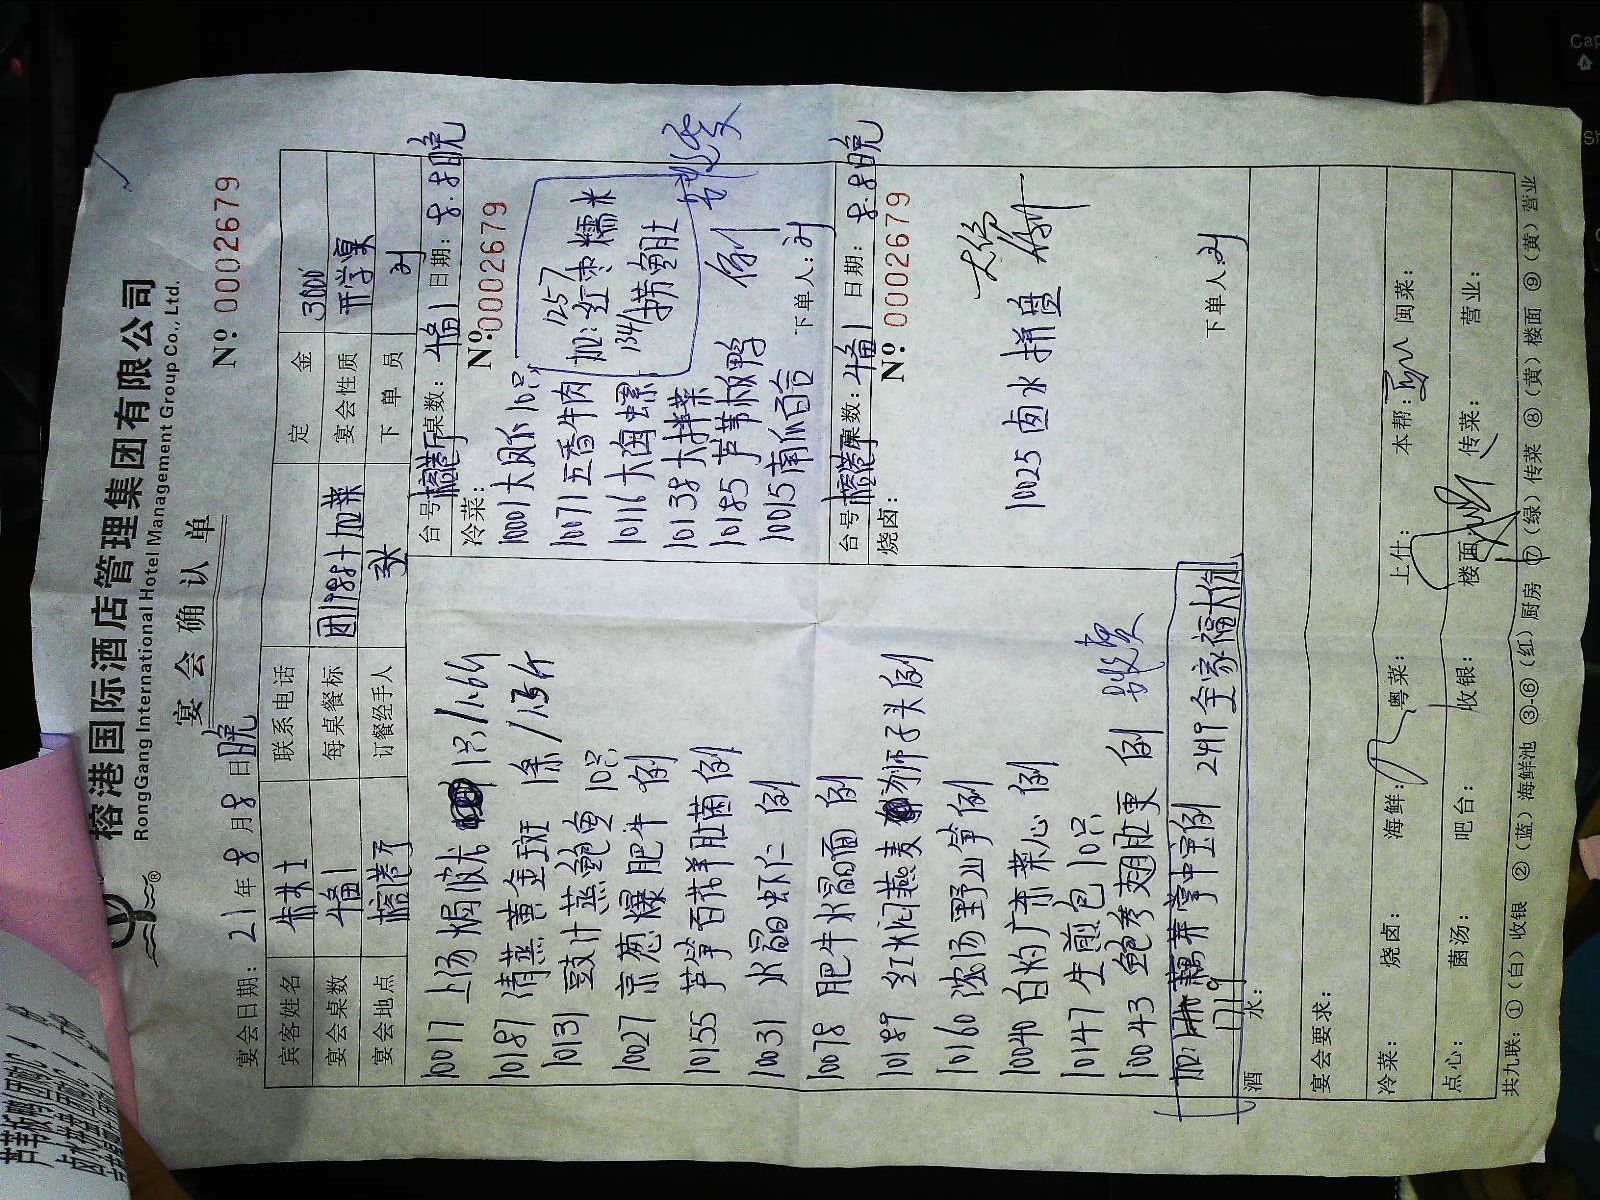 榕港国际酒店管理集团有限公司
RongGang International Hotel Management Group Co., Ltd.
宴会确认单
宴会日期: 21年8月8日晚 Nº 0002679
宾客姓名 联系电话 定金 3000
宴会桌数 1 每桌餐标 加菜 宴会性质 开学宴
宴会地点 榕港厅 订餐经手人 下单员 刘
10017 上汤焗 1只/1.6斤
10187 清蒸黄金斑 1条/1.5斤
10131 豉汁蒸鲍鱼 10只
10027 京葱爆肥牛 例
10155 芦笋百花羊肚菌 例
10031 水晶虾仁 例
10078 肥牛水晶面 例
10189 红焖燕麦狮子头 例
10160 浓汤野山笋 例
10040 白灼广东菜心 例
10147 生煎包 10只
10043 鲍参翅肚更 例
加: 1719 藕芽掌中宝 例 2419 全家福 大份
台号 榕港厅 桌数: 1 日期: 8.8晚
冷菜: Nº 0002679
10001 大凤爪 10只
10071 五香牛肉
10116 大海螺
10138 大拌菜
10185 芦苇板鸭
10015 南瓜百合
加: 1257 红枣糯米
1341 捞鱼肚
下单人: 刘
台号 榕港厅 桌数: 1 日期: 8.8晚
烧卤: Nº 0002679
10025 卤水拼盘
下单人: 刘
酒水:
宴会要求:
冷菜: 烧卤: 海鲜: 粤菜: 上什: 本帮: 闽菜:
点心: 菌汤: 吧台: 收银: 楼面: 传菜: 营业:
共九联: ①(白)收银 ②(蓝)海鲜池 ③-⑥(红)厨房 ⑦(绿)传菜 ⑧(黄)楼面 ⑨(黄)营业